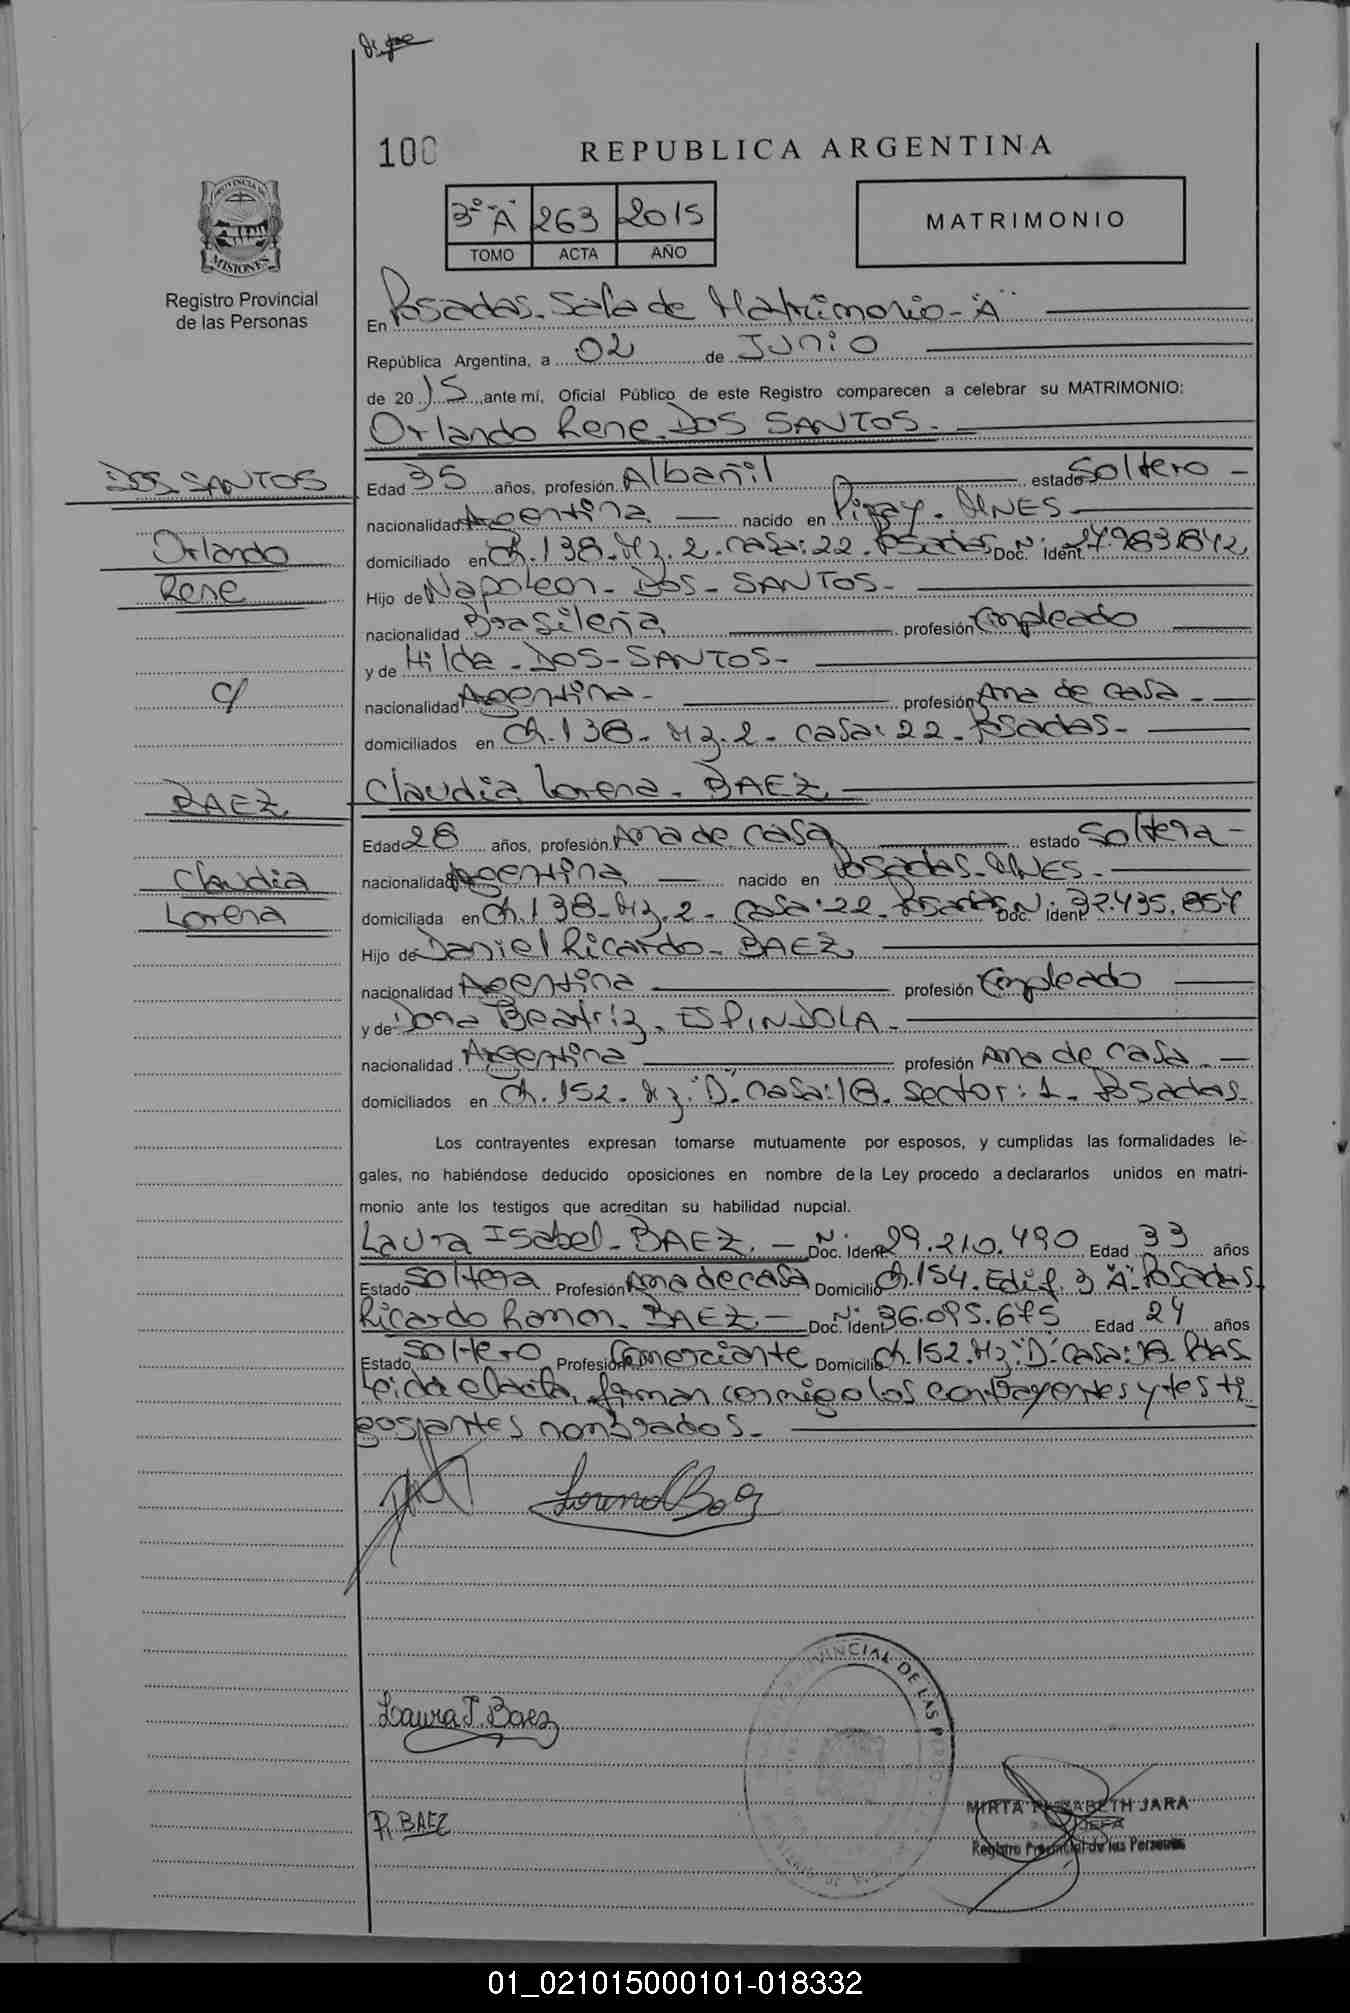 100
REPUBLICA ARGENTINA
PROVINCIA DE
MISIONES
Registro Provincial
de las Personas
3º "A" 263 2015
TOMO ACTA AÑO
MATRIMONIO
En Posadas. Sala de Matrimonio - "A"
República Argentina, a 02 de Junio
de 2015 ante mí, Oficial Público de este Registro comparecen a celebrar su MATRIMONIO:
Orlando Rene. DOS SANTOS.-
DOS SANTOS
Orlando
Rene
c/
BAEZ
Claudia
Lorena
Edad 35 años, profesión Albañil estado Soltero -
nacionalidad Argentina - nacido en Piray. MNES.
domiciliado en Ch. 138. Mz. 2. casa: 22. Posadas Doc. Nº Ident 27.983.842
Hijo de Napoleon - DOS - SANTOS -
nacionalidad Brasileña profesión Empleado
y de Hilda - DOS - SANTOS -
nacionalidad Argentina - profesión Ama de casa -
domiciliados en Ch. 138 - Mz. 2 - casa: 22 - Posadas -
Claudia Lorena. BAEZ
Edad 28 años, profesión Ama de casa estado Soltera -
nacionalidad Argentina - nacido en Posadas. MNES. -
domiciliada en Ch. 138 - Mz. 2 - casa: 22. Posadas Doc. Nº Ident 32.435.857
Hijo de Daniel Ricardo - BAEZ
nacionalidad Argentina profesión Empleado
y de Dona Beatriz. ESPINDOLA -
nacionalidad Argentina profesión Ama de casa -
domiciliados en Ch. 152. Mz: "D" casa: 18. sector: 1. Posadas.
Los contrayentes expresan tomarse mutuamente por esposos, y cumplidas las formalidades le-
gales, no habiéndose deducido oposiciones en nombre de la Ley procedo a declararlos unidos en matri-
monio ante los testigos que acreditan su habilidad nupcial.
Laura Isabel - BAEZ. - Doc. Nº Ident 29.210.490 Edad 33 años
Estado Soltera Profesión Ama de casa Domicilio Ch. 154. Edif. 3 "A" Posadas
Ricardo Ramon. BAEZ - Doc. Nº Ident 36.095.675 Edad 24 años
Estado Soltero Profesión Comerciante Domicilio Ch. 152. Mz: "D" casa: 18. Pdas
Leida el acta, firman conmigo los contrayentes y testi
gos antes nombrados. -
Lorena Baez
Laura I. Baez
R. BAEZ
PROVINCIAL DE LAS
MIRTA ELIZABETH JARA
JEFA
Registro Provincial de las Personas
01_021015000101-018332